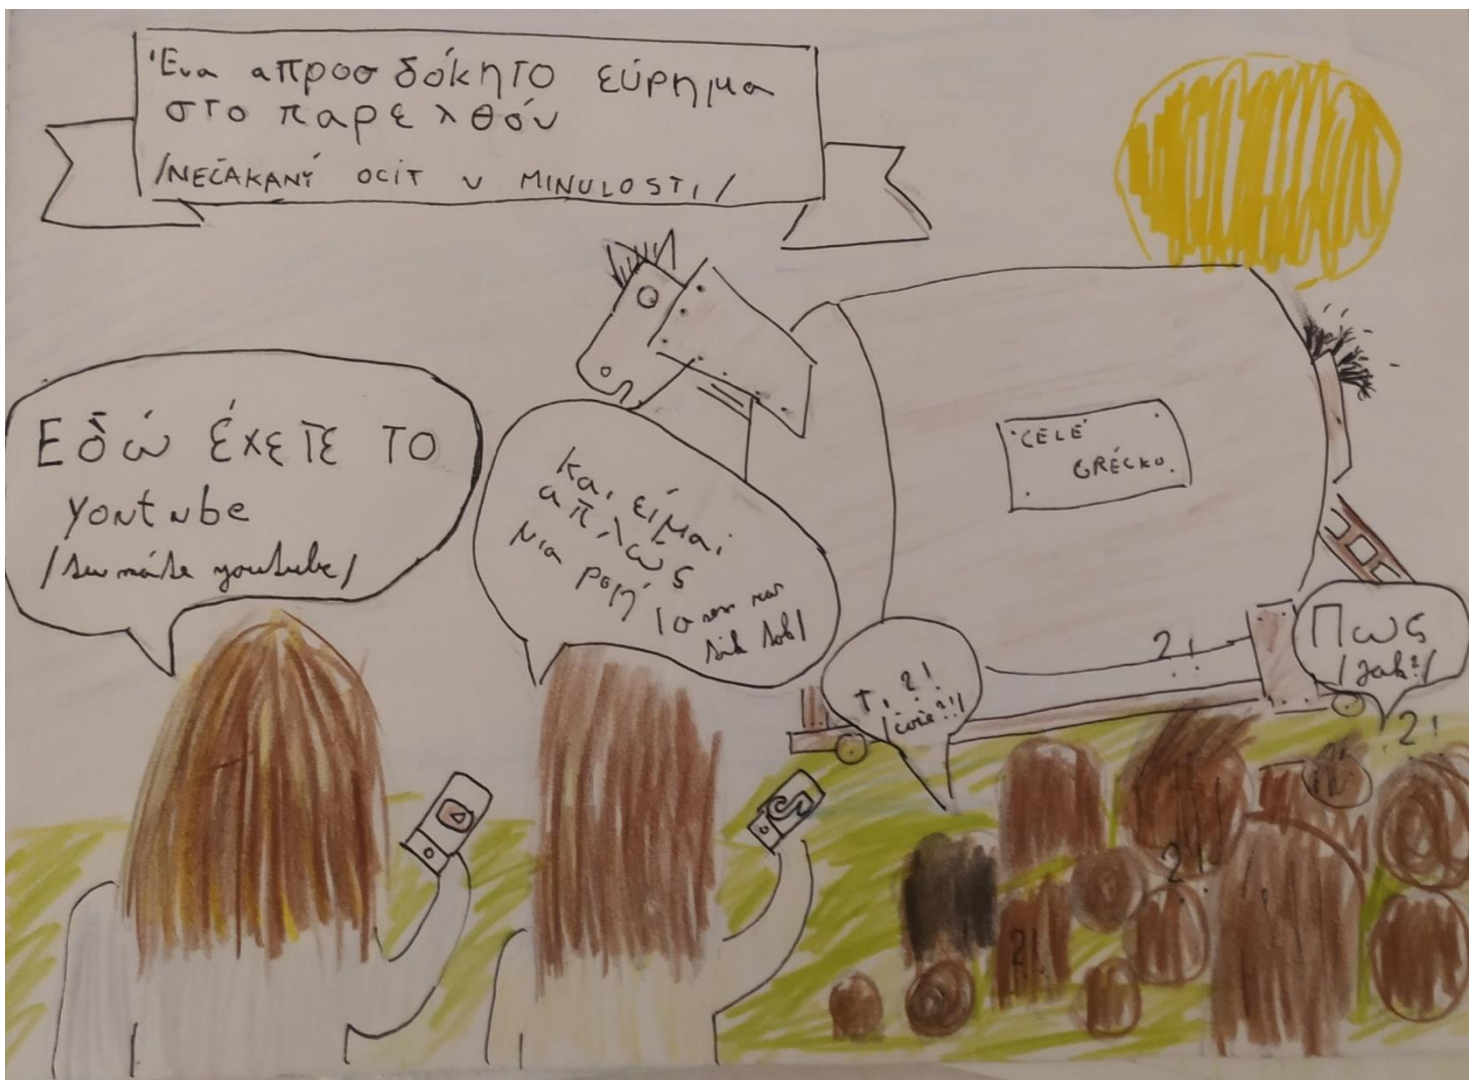 Ένα απροσδόκητο εύρημα
στο παρελθόν
/NEČAKANÝ OCIT V MINULOSTI/
Εδώ έχετε το
youtube
/tu máte youtube/
και είμαι
απλώς
μια ροή
CELÉ
GRÉCKO.
Τι?!
/čože?!/
?!
Πως
/Jak?/
?!
?!
?!